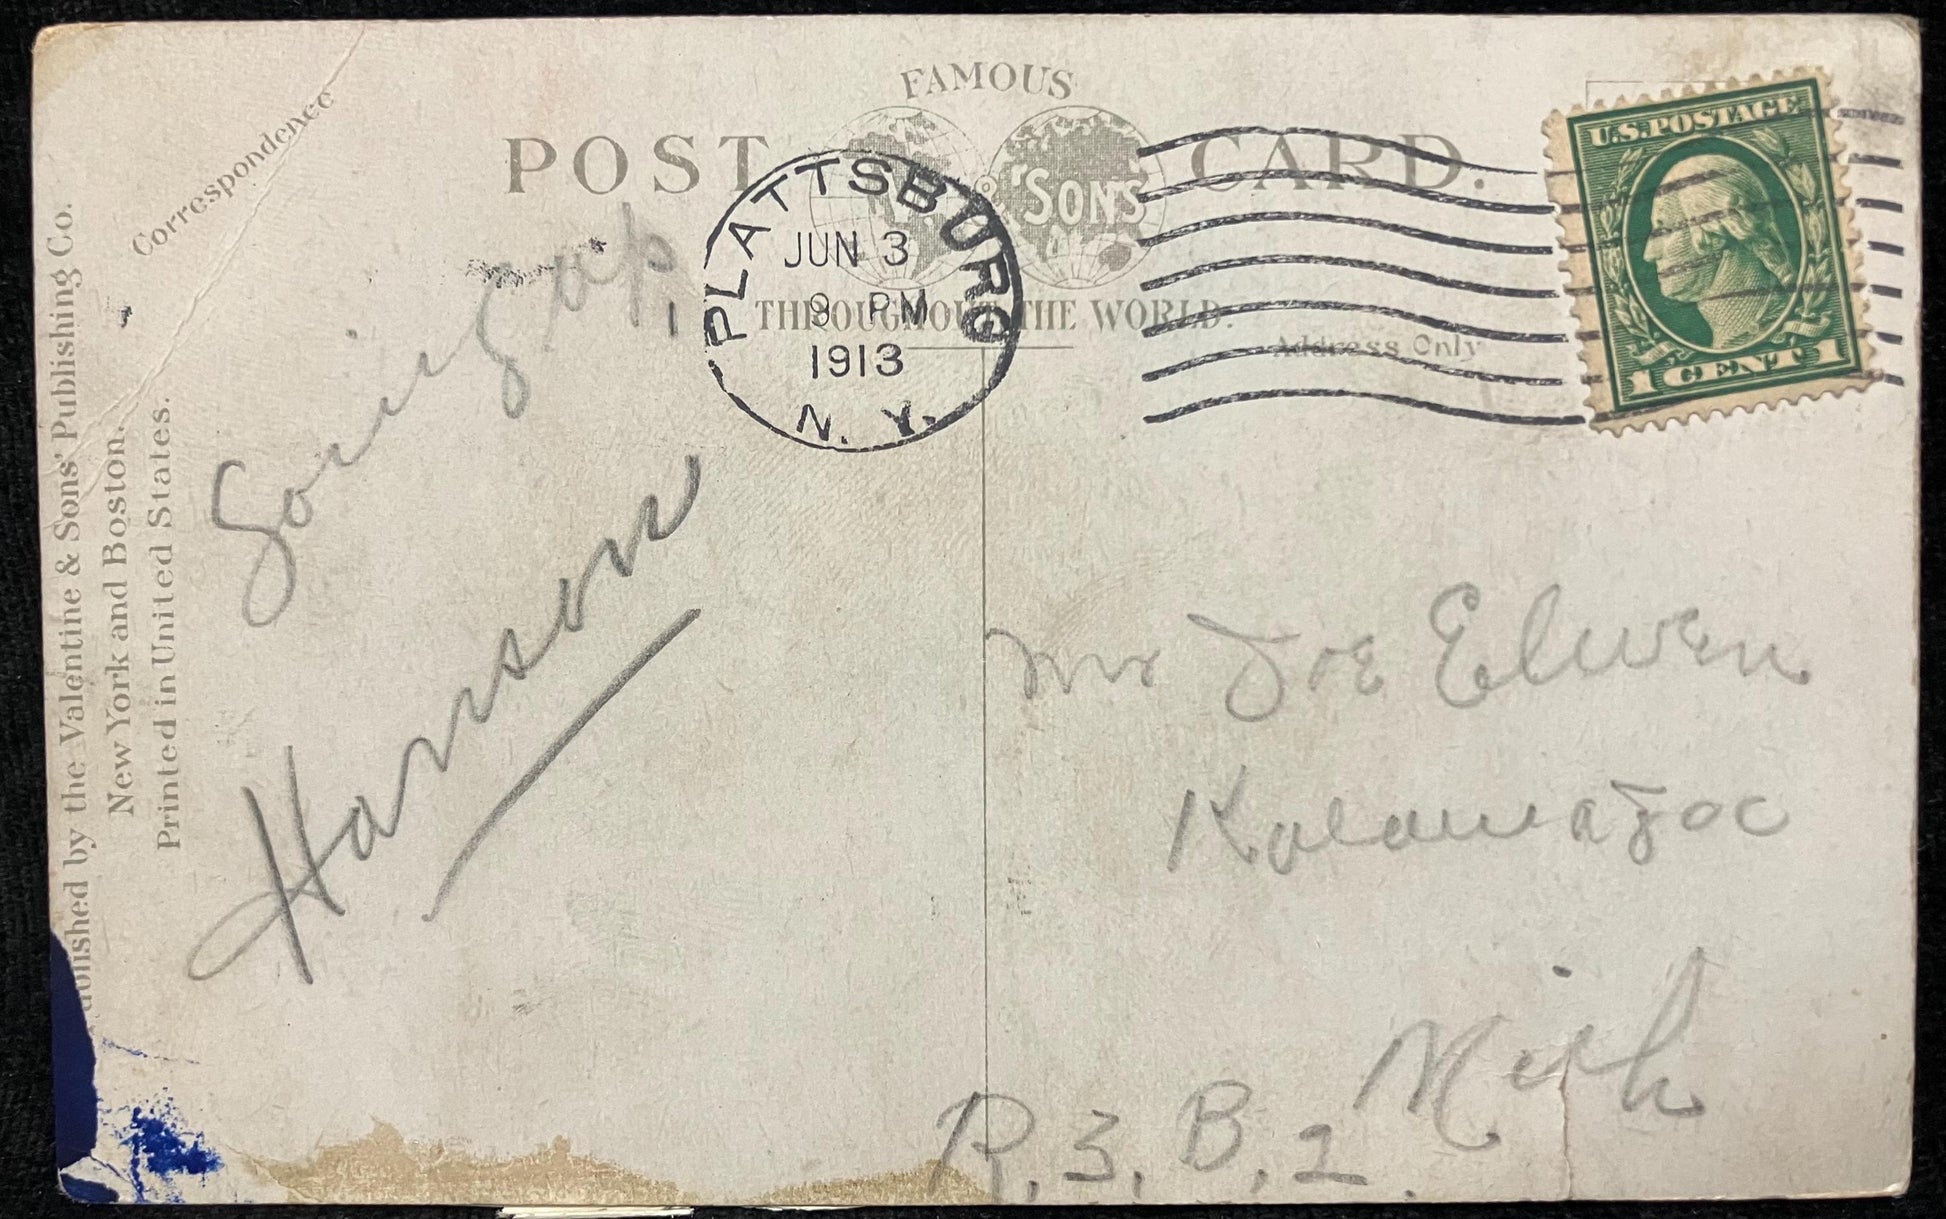 FAMOUS
POST CARD.
& SONS
THROUGHOUT THE WORLD.
Correspondence
Address Only
PLATTSBURG
JUN 3
9 PM
1913
N. Y.
U.S. POSTAGE
1 CENT 1
Published by the Valentine & Sons' Publishing Co.
New York and Boston.
Printed in United States.
Going up,
Harrison
Mr Joe Elwen
Kalamazoo
Mich
R, 3, B, 2.